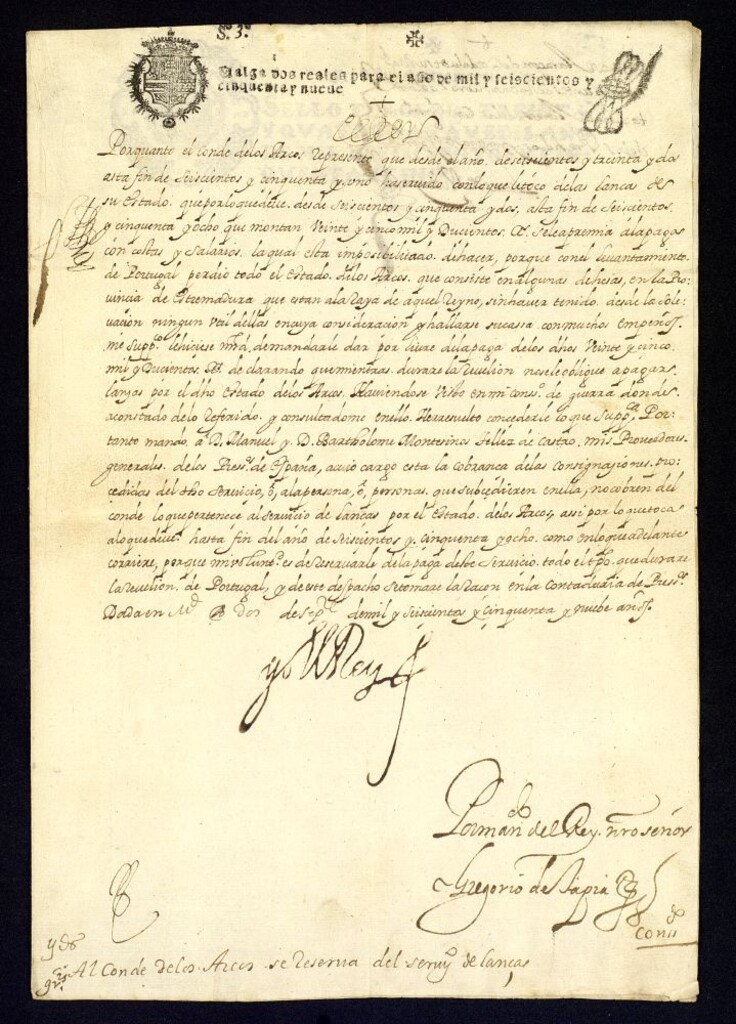 S.º 3.º
Valga dos reales para el año de mil y seiscientos y
cinquenta y nueve
El Rey
Porquante el Conde delos Arcos represento que desde el año, de seiscientos y treinta y dos
asta fin de Seiscientos y cinquenta y uno ha servido con lo que le toco de las lanças de
su Estado, que por lo que deve desde Seiscientos y cinquenta y dos, asta fin de Seiscientos
y cinquenta y ocho que montan Veinte y cinco mil y Ducientos Rs. se le apremia a la paga
con costas y Salarios, la qual esta imposibilitado de hacer, porque con el levantamiento
de Portugal perdio todo el Estado de los Arcos, que consiste en algunas dehesas, en la Pro-
vincia de Estremadura que estan a la raya de aquel Reyno, sin haver tenido desde la Sole-
vacion ningun Util dellas en cuya consideracion y hallarse su casa con muchos empeños,
me Suppco. le hiciese mrd. de mandarle dar por libre de la paga de los dhos Veinte y cinco
mil y Ducientos Rs. declarando que mientras durare la revelion no se le obligue a pagar
lanças por el dho Estado de los Arcos. Haviendose Visto en mi consº. de guerra donde
a constado de lo referido, y consultadome en ello. He resuelto concederle lo que Suppca. Por-
tanto mando a D. Manuel y D. Bartholome Montesinos Tellez de Castro, mis Proveedores
generales de los Presos. de España, a cuio cargo esta la cobrança de las consignaciones pro-
cedidas del dho Servicio, ô, a la persona, ô, personas que subcedieren en ella, no cobren del
conde lo que pertenece al servicio de lanças por el Estado de los Arcos, assi por lo que toca
a lo que deve hasta fin del año de Seiscientos y cinquenta y ocho, como en lo que adelante
corriere, porque mi voluntd. es de reservarle de la paga deste Servicio todo el tpo. que durare
la revelion de Portugal, y de este despacho se tomare la racon en la Contaduria de Presos.
Dada en Md. A Dos de sepe. de mil y Seiscientos y cinquenta y nuebe años.
yo el Rey
Por mando. del Rey nro señor
Gregorio de Tapia
Al Conde delos Arcos se reserva del servo. de lanças